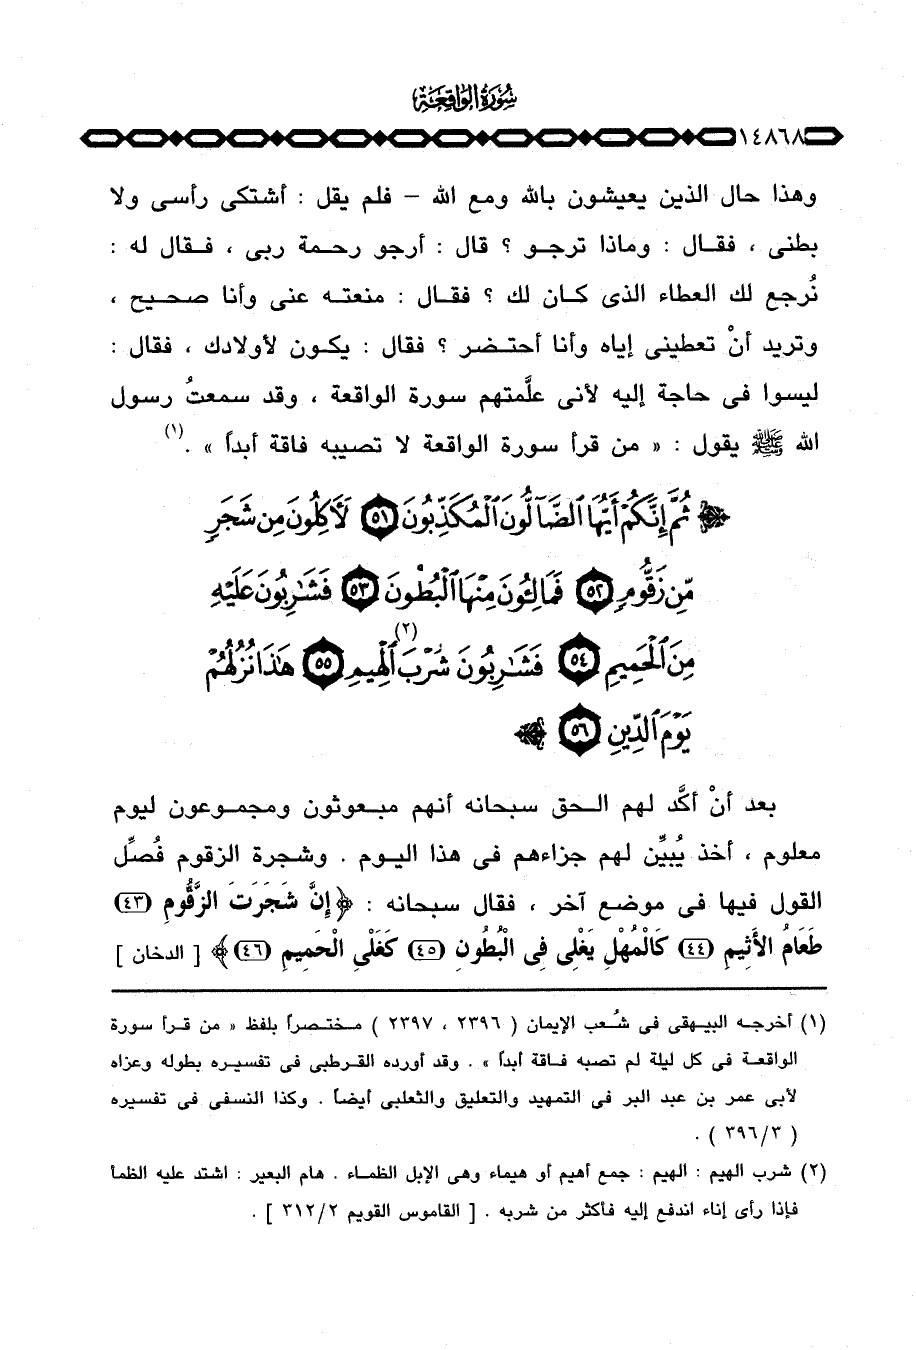 سُورَةُ الوَاقِعَة
١٤٨٦٨
وهذا حال الذين يعيشون بالله ومع الله – فلم يقل : أشتكى رأسى ولا
بطنى ، فقال : وماذا ترجو ؟ قال : أرجو رحمة ربى ، فقال له :
نُرجع لك العطاء الذى كان لك ؟ فقال : منعته عنى وأنا صحيح ،
وتريد أنْ تعطينى إياه وأنا أحتضر ؟ فقال : يكون لأولادك ، فقال :
ليسوا فى حاجة إليه لأنى علَّمتهم سورة الواقعة ، وقد سمعتُ رسول
الله ﷺ يقول : « من قرأ سورة الواقعة لا تصيبه فاقة أبداً » .(١)
﴿ ثُمَّ إِنَّكُمْ أَيُّهَا ٱلضَّآلُّونَ ٱلْمُكَذِّبُونَ ٥١ لَأَكِلُونَ مِن شَجَرٍ
مِّن زَقُّومٍ ٥٢ فَمَالِـُٔونَ مِنْهَا ٱلْبُطُونَ ٥٣ فَشَـٰرِبُونَ عَلَيْهِ
مِنَ ٱلْحَمِيمِ ٥٤ فَشَـٰرِبُونَ شُرْبَ ٱلْهِيمِ (٢) ٥٥ هَـٰذَا نُزُلُهُمْ
يَوْمَ ٱلدِّينِ ٥٦ ﴾
بعد أنْ أكَّد لهم الحق سبحانه أنهم مبعوثون ومجموعون ليوم
معلوم ، أخذ يُبيِّن لهم جزاءهم فى هذا اليوم . وشجرة الزقوم فُصِّل
القول فيها فى موضع آخر ، فقال سبحانه : ﴿ إِنَّ شَجَرَتَ الزَّقُّومِ (٤٣)
طَعَامُ الأَثِيمِ (٤٤) كَالْمُهْلِ يَغْلِى فِى الْبُطُونِ (٤٥) كَغَلْىِ الْحَمِيمِ (٤٦) ﴾ [ الدخان ]
(١) أخرجه البيهقى فى شُعب الإيمان ( ٢٣٩٦ ، ٢٣٩٧ ) مختصراً بلفظ « من قرأ سورة
الواقعة فى كل ليلة لم تصبه فاقة أبداً » . وقد أورده القرطبى فى تفسيره بطوله وعزاه
لأبى عمر بن عبد البر فى التمهيد والتعليق والثعلبى أيضاً . وكذا النسفى فى تفسيره
( ٣٩٦/٣ ) .
(٢) شرب الهيم : الهيم : جمع أهيم أو هيماء وهى الإبل الظماء . هام البعير : اشتد عليه الظمأ
فإذا رأى إناء اندفع إليه فأكثر من شربه . [ القاموس القويم ٣١٢/٢ ] .